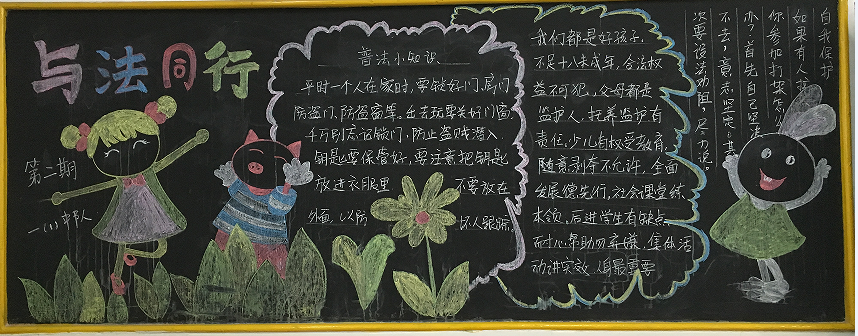 与法同行
第二期
一(1)中队
普法小知识
平时一个人在家时，要锁好门，窗门
防盗门、防盗窗等。出去玩要关好门窗，
千万别忘记锁门，防止盗贼潜入
钥匙要保管好，要注意把钥匙
放进衣服里 不要放在
外面，以防 坏人跟踪
我们都是好孩子，
不足十八未成年，合法权
益不可犯，父母都是
监护人，抚养监护有
责任，少儿自权受教育，
随意剥夺不允许，全面
发展德先行，社会课堂练
本领，后进学生有缺点
而心帮助勿弃嫌，集体活
动讲实效，最重要
自我保护
如果有人
你参加打架怎么
办？首先自己坚决
不去，意志坚定。其
次要设法劝阻，尽力说。